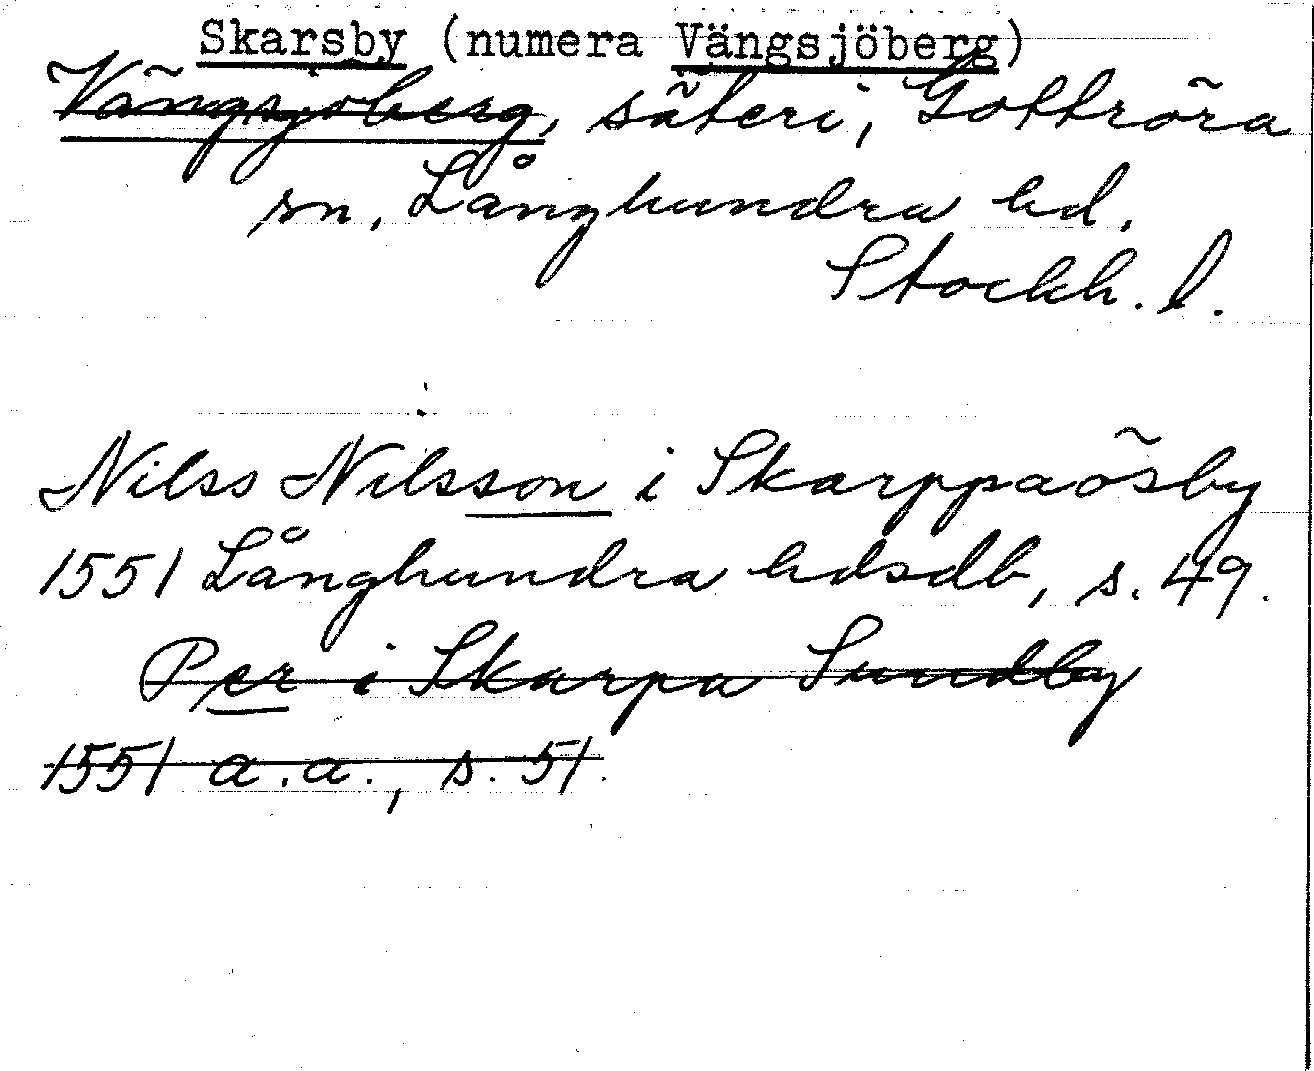 Skarsby (numera Vängsjöberg)
Vängsjöberg, säteri, Gottröra
sn, Långhundra hd.
Stockh. l.
Nilss Nilsson i Skarppaösby
1551 Långhundra hdsdb, s. 49.
Per i Skarpa Sundby
1551 a.a., s. 51.